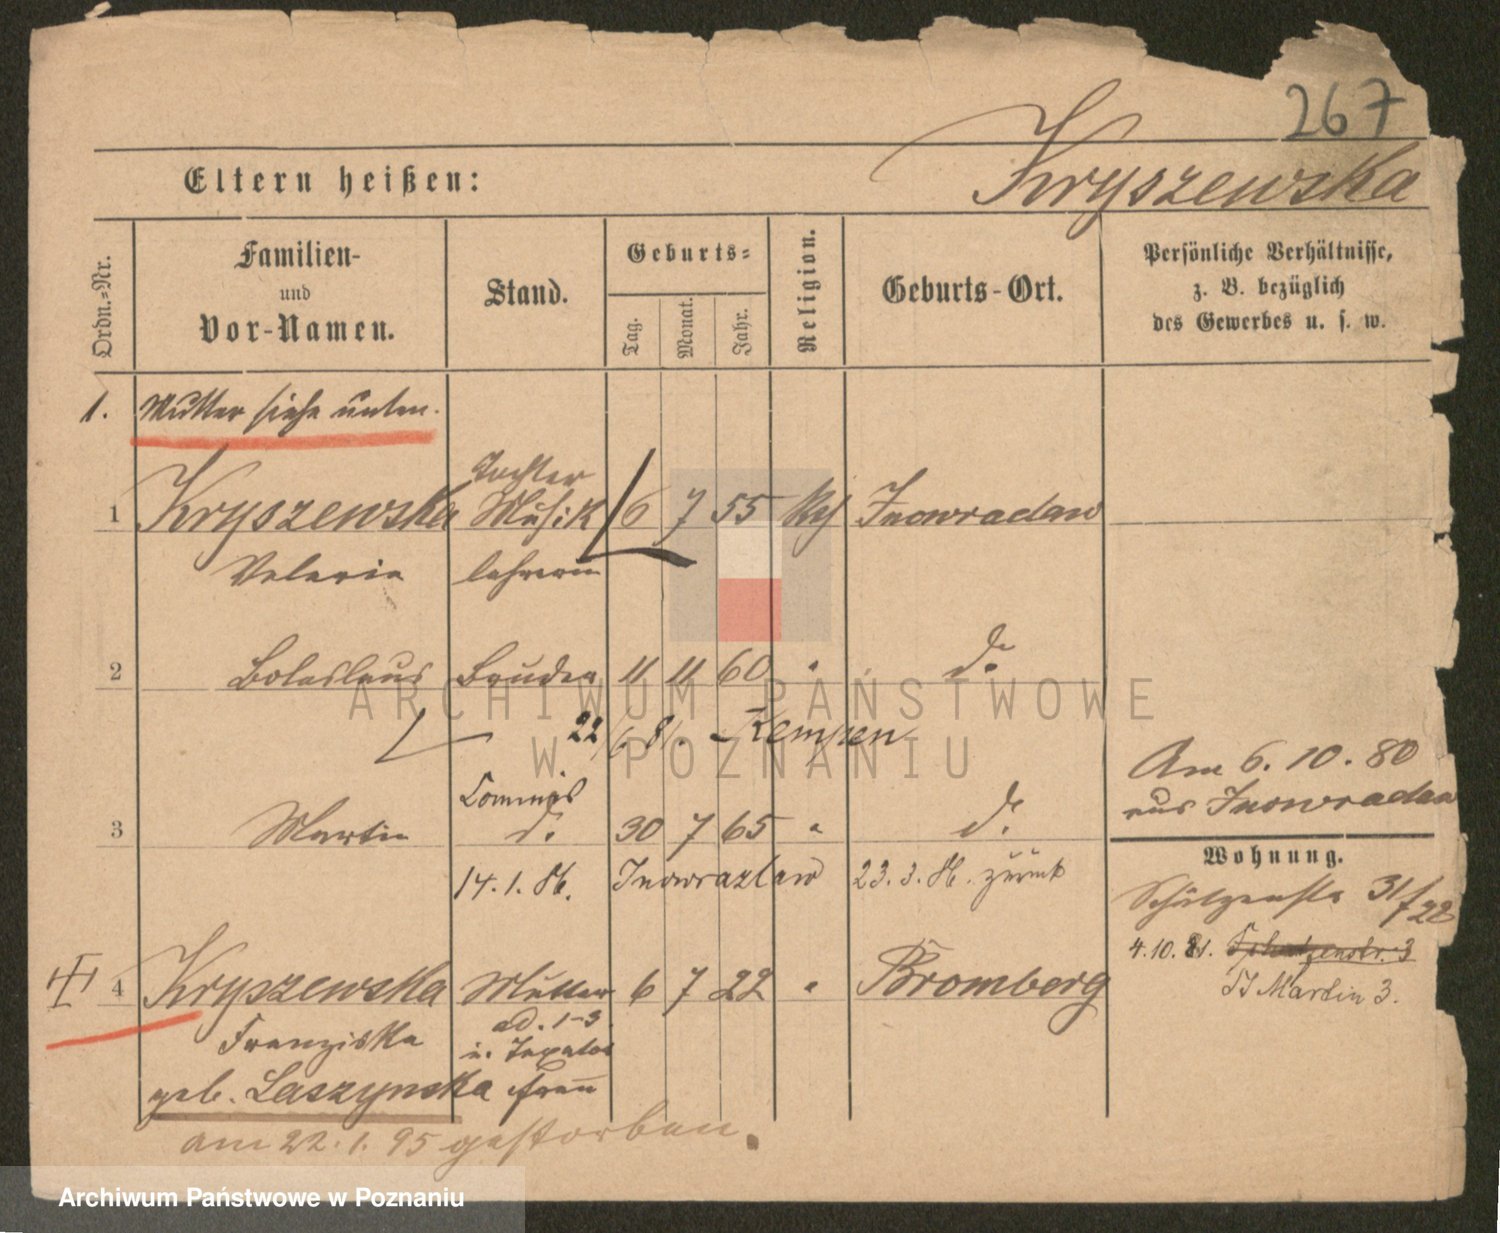 267
Eltern heißen: Kryszewska
Ordn.=Nr.
Familien-
und
Vor-Namen.
Stand.
Geburts=
Tag. Monat. Jahr.
Religion.
Geburts-Ort.
Persönliche Verhältnisse,
z. B. bezüglich
des Gewerbes u. s. w.
1. Mutter siehe unten.
Tochter
1 Kryszewska Musik 6 7 55 Inowraclaw
Valeria lehrerin
2 Boleslaus Bruder 11 11 60 " d.
22/6 81. - Kempen
Am 6. 10. 80
aus Inowraclaw
Commis
3 Martin d. 30 7 65 " d.
14. 1. 86. Inowrazlaw 23. 3. 86. zurück
Wohnung.
Schützenstr 31/
4.10. 81. Schützenstr. 3
St Martin 3.
4 Kryszewska Mutter 6 7 22 " Bromberg
Franziska ad. 1-3
geb. Laszynska frau
am 22. 1. 95 gestorben.
ARCHIWUM PAŃSTWOWE
W POZNANIU
Archiwum Państwowe w Poznaniu